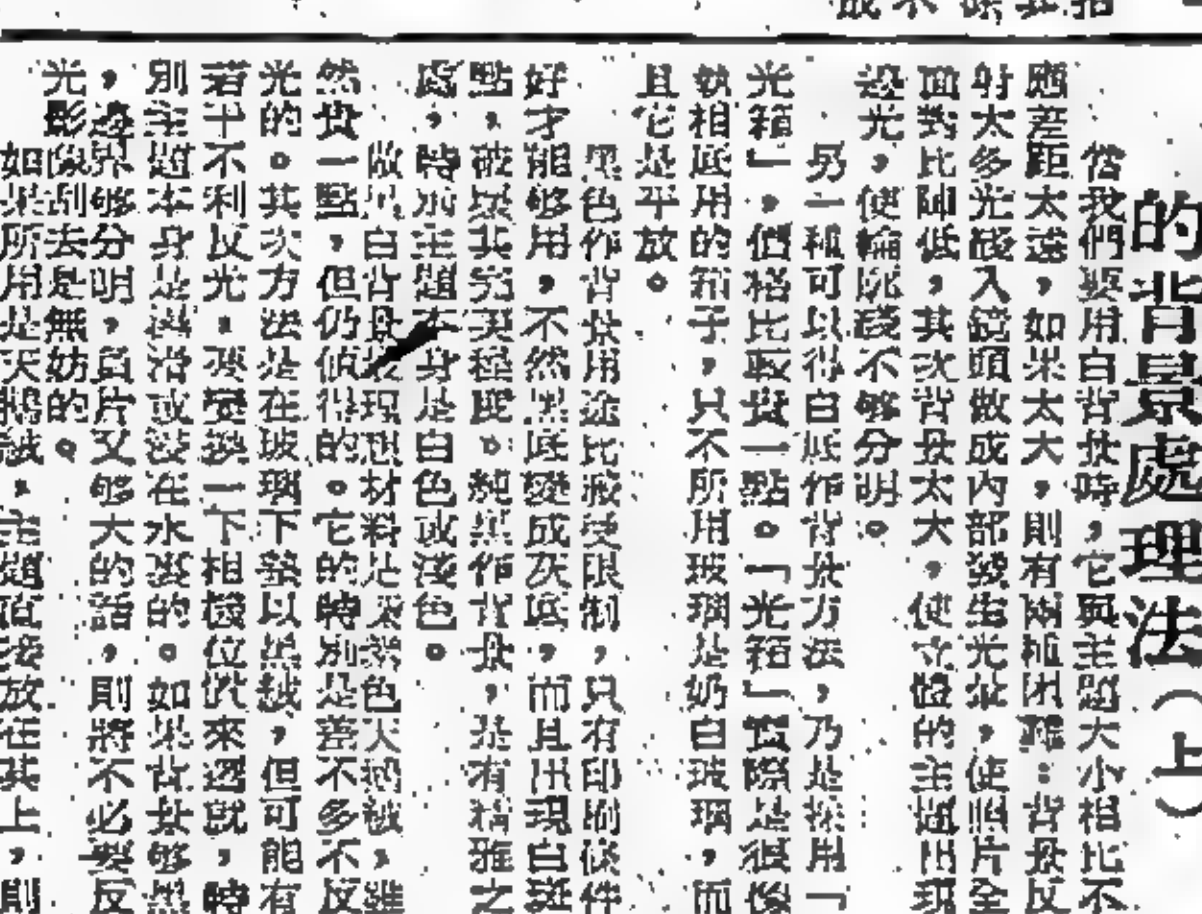 的背景處理法（上）
當我們要用白背景時，它與主題大小相比不
應差距太遠，如果太大，則有兩種困難：背景反
射太多光綫入鏡頭做成內部發生光暈，使照片全
面對比降低，其次背景太大，使立體的主題出現
邊光，使輪廓綫不够分明。
另一種可以得白底作背景方法，乃是採用「
光箱」，價格比較貴一點。「光箱」實際是很像
執相底用的箱子，只不所用玻璃是奶白玻璃，而
且它是平放。
黑色作背景用途比較受限制，只有印刷條件
好才能够用，不然黑底變成灰底，而且出現白斑
點，破壞其完美程度。純黑作背景，是有精雅之
處，特別主題本身是白色或淺色。
做黑白背景 理想材料是深黑色天鵝絨，雖
然貴一點，但仍值得的。它的特別是差不多不反
光的。其次方法是在玻璃下墊以黑絨，但可能有
若干不利反光，要變換一下相機位置來遷就，時
別主題本身是 或浸在水裏的。如果背景够黑
，邊界够分明，負片又够大的話，則將不必要反
光影像刮去是無妨的。
如果所用是天鵝絨，主題直接放在其上，則